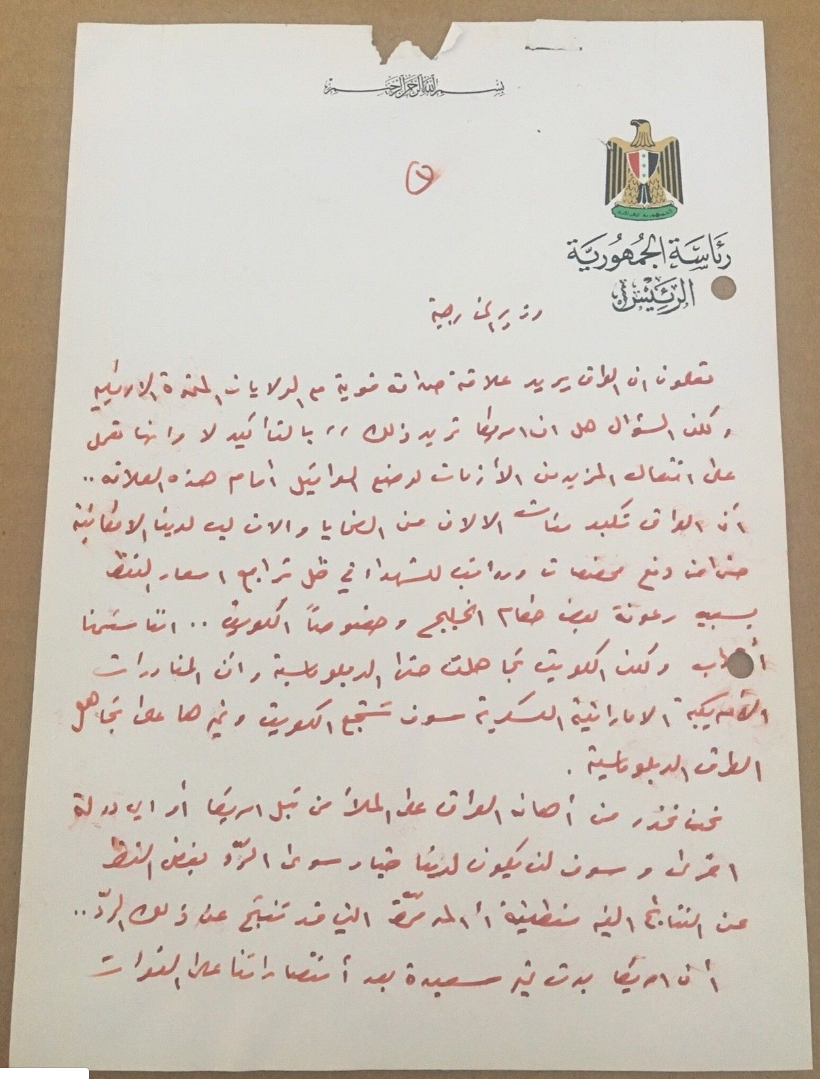 بسم الله الرحمن الرحيم
١
رئاسة الجمهورية
الرئيس
وزير الخارجية
تعلمون ان العراق يريد علاقة صداقة قوية مع الولايات المتحدة الامريكية
ولكن السؤال هل ان امريكا تريد ذلك ،، بالتأكيد لا وانها تعمل
على افتعال المزيد من الأزمات لوضع العراقيل أمام هذه العلاقة ..
أن العراق تكبد مئات الالاف من الضحايا والان ليس لدينا الامكانية
حتى من دفع مخصصات ورواتب للشهداء في ظل تراجع اسعار النفط
بسبب رعونة بعض حكام الخليج وخصوصاً الكويت .. اننا
ولكن الكويت تجاهلت حتى الدبلوماسية وأن المناورات
الأمريكية الاماراتية العسكرية سوف تشجع الكويت وغيرها على تجاهل
الطرق الدبلوماسية .
نحن نحذر من أهانة العراق على الملأ من قبل امريكا أو اي دولة
اخرى وسوف لن يكون لدينا خيار سوى الردّ بغض النظر
عن النتائج التي قد تنتج عن ذلك الردّ ..
أن امريكا بدت غير سعيدة بعد أنتصاراتنا على القوات